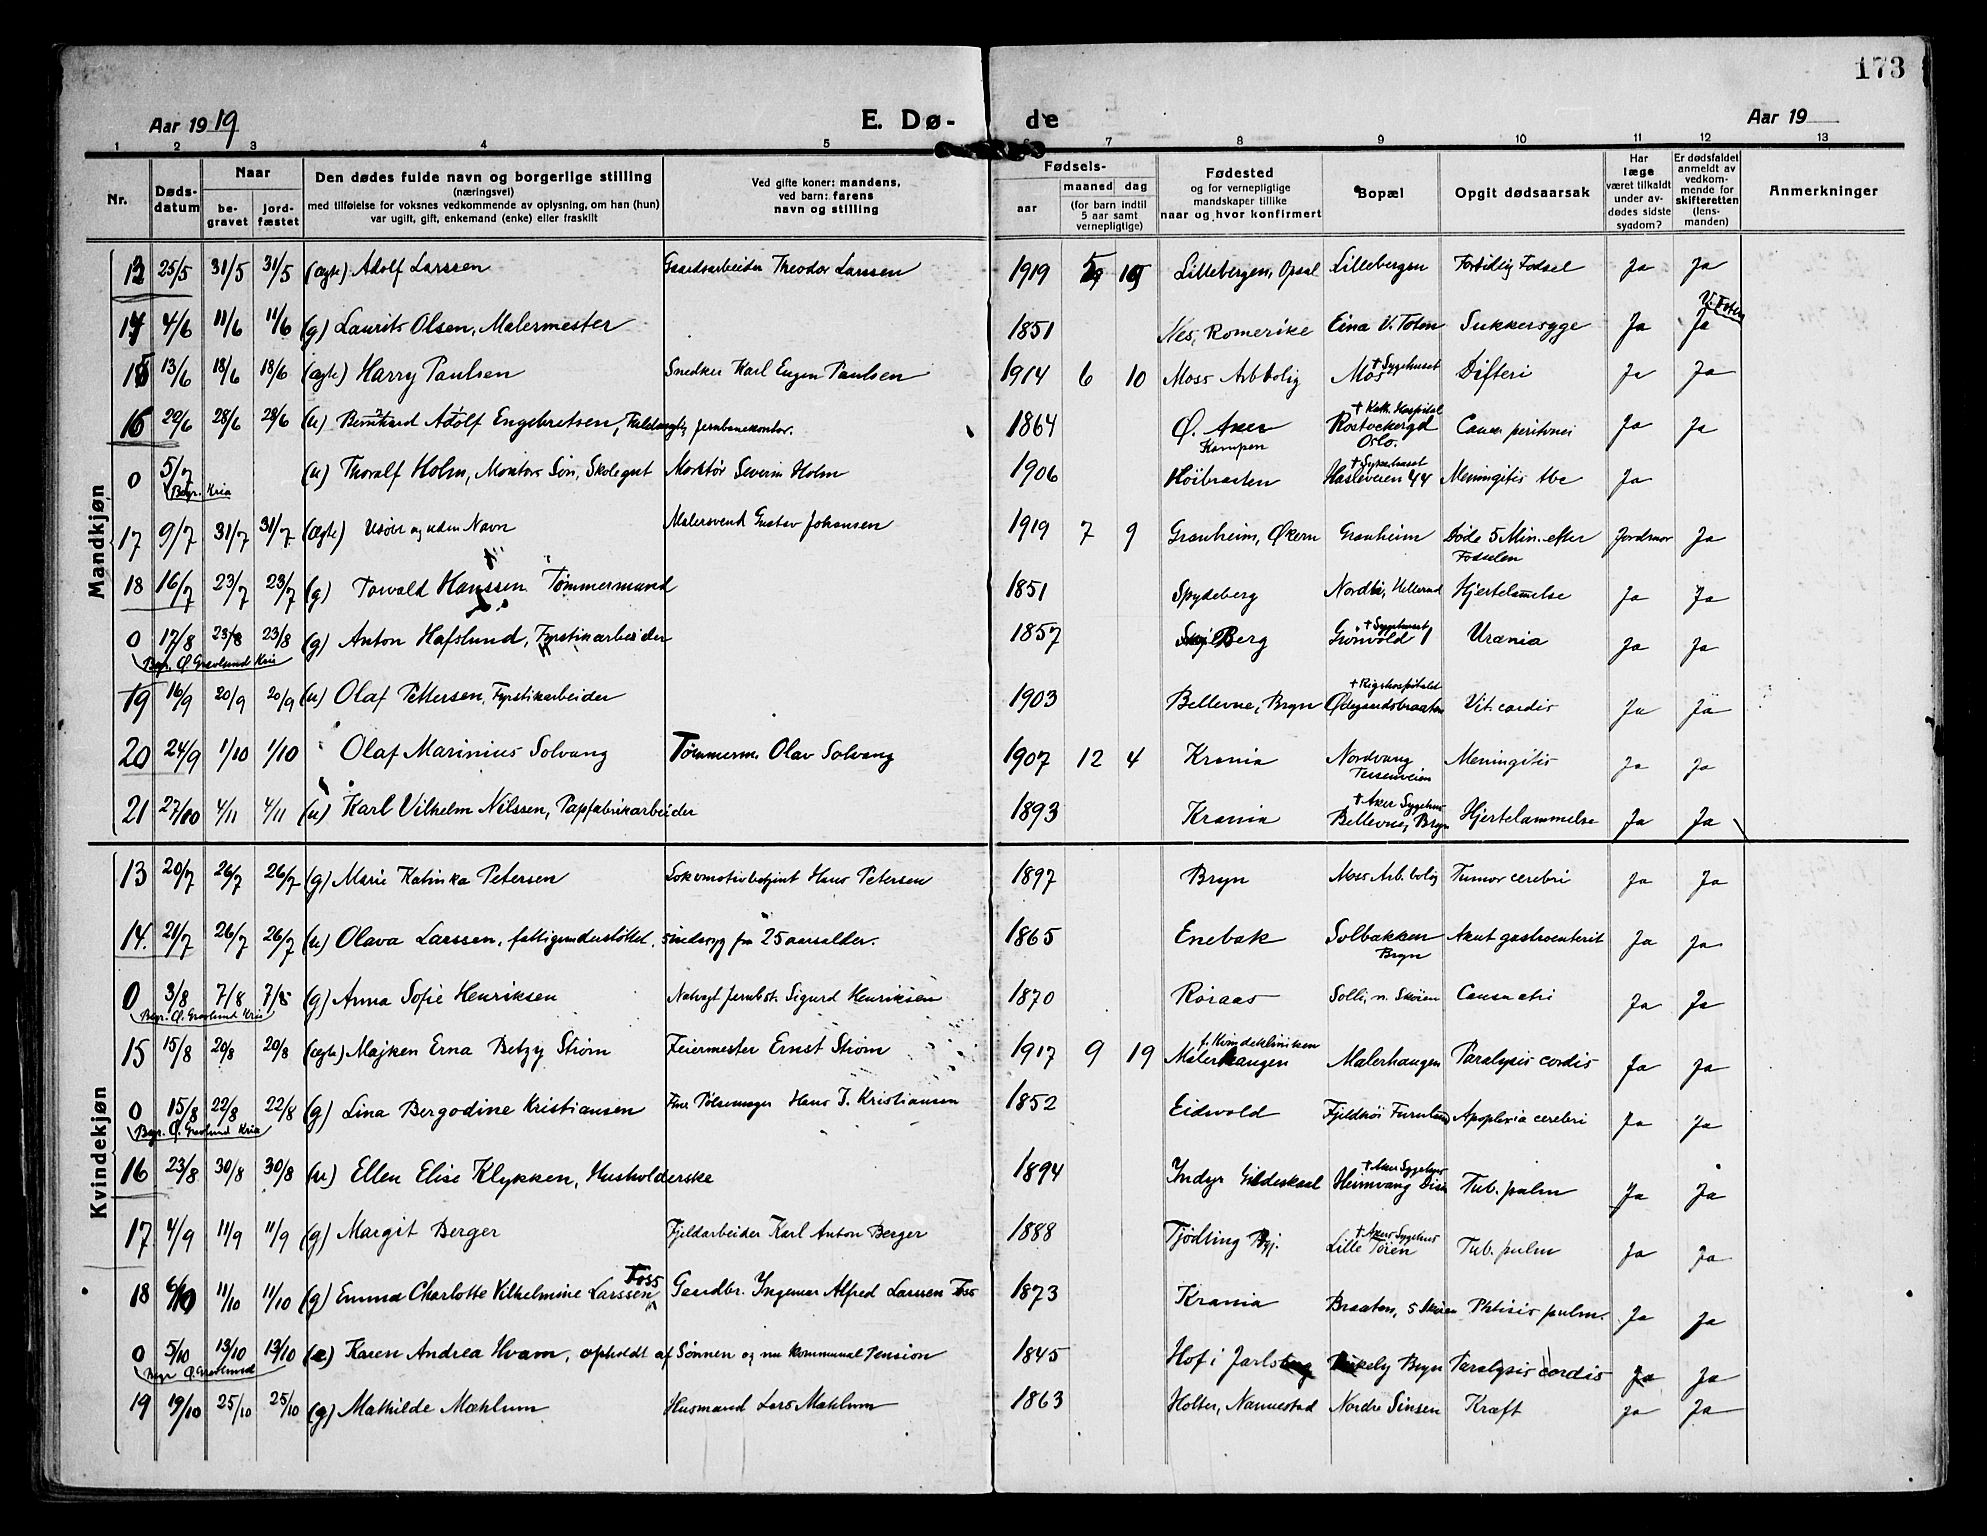 173
Aar 1919 E. Dø- de Aar 19
1 2 3 4 5 6 7 8 9 10 11 12 13
Nr.
Døds-datum
Naar
be-gravet
jord-fæstet
Den dødes fulde navn og borgerlige stilling
(næringsvei)
med tilføielse for voksnes vedkommende av oplysning, om han (hun)
var ugift, gift, enkemand (enke) eller fraskilt
Ved gifte koner: mandens,
ved barn: farens
navn og stilling
Fødsels-
aar
maaned dag
(for barn indtil
5 aar samt
vernepligtige)
Fødested
og for vernepligtige
mandskaper tillike
naar og hvor konfirmert
Bopæl
Opgit dødsaarsak
Har
læge
været tilkaldt
under av-
dødes sidste
sygdom?
Er dødsfaldet
anmeldt av
vedkom-
mende for
skifteretten
(lens-
manden)
Anmerkninger
Mandkjøn
25/5 31/5 31/5 (ægte) Adolf Larssen Gaardsarbeider Theodor Larssen 1919 5 Lillebergen, Opsal Lillebergen Fortidlig Fødsel Ja Ja
V. Toten
14 4/6 11/6 11/6 (g) Laurits Olsen, Malermester 1851 Nes, Romerike Eina V. Toten Sukkersyge Ja Ja
† Sygehuset
15 13/6 18/6 18/6 (ægte) Harry Paulsen Snedker Karl Eugen Paulsen 1914 6 10 Moss Arbbolig Mos Difteri Ja Ja
† Kath. Hospital
16 29/6 28/6 28/6 (u) Bernhard Adolf Engebretsen, Jernbanekontor. 1864 Ø. Aker Ja Ja
Kampen Oslo.
† Sykehuset
0 5/7 (u) Thoralf Holm, Montørs Søn, Skolegut Montør Severin Holm 1906 Høibraaten Hasleveien 44 Meningitis tbc Ja
Begr. Kria
17 9/7 31/7 31/7 (ægte) Udøbt og uden Navn Malersvend Gustav Johansen 1919 7 9 Granheim, Økern Granheim Døde 5 Min. efter Jordmor Ja
Fødselen
18 16/7 23/7 23/7 (g) Torvald Hanssen Tømmermand 1851 Spydeberg Nordli, Hellerud Hjertelammelse Ja Ja
† Sygehuset
0 17/8 23/8 23/8 (g) Anton Hafslund, Fyrstikarbeider 1857 Berg Grønvold 1 Uræmia Ja Ja
Begr. Ø. Gravlund Kria
† Rigshospitalet
19 16/9 20/9 20/9 (u) Olaf Pettersen, Fyrstikarbeider 1903 Bellevue, Bryn Ødegaardsbraaten Vit. cordis Ja Ja
20 24/9 1/10 1/10 Olaf Marinius Solvang Tømmerm. Olav Solvang 1907 12 4 Krania Nordvang Meningitis Ja Ja
† Aker Sygehus
21 27/10 4/11 4/11 (u) Karl Vilhelm Nilssen, Papfabrikarbeider 1893 Krania Bellevue, Bryn Hjertelammelse Ja Ja
Kvindekjøn
13 20/7 26/7 26/7 (g) Marie Katinka Petersen Lokomotivbetjent Hans Petersen 1897 Bryn Moss Arb.bolig Tumor cerebri Ja Ja
14. 21/7 26/7 26/7 (u) Olava Larssen, fattigunderstøttet, sindssyg fra 25 aarsalder. 1865 Enebak Solbakken Akut gastroenterit Ja Ja
Bryn
0 3/8 7/8 7/8 (g) Anna Sofie Henriksen Natvagt Jernbst. Sigurd Henriksen 1870 Røraas Solli, n. Skøien Ja Ja
Begr. Ø. Gravlund Kria
† Kvindeklinikken
15 15/8 20/8 20/8 (ægte) Majken Erna Betzy Strøm Feiermester Ernst Strøm 1917 9 19 Malerhaugen Malerhaugen Paralysis cordis Ja Ja
0 15/8 22/8 22/8 (g) Lina Bergodine Kristiansen Pølsemager Hans J. Kristiansen 1852 Eidsvold Fjeldhøi Furulund Apoplexia cerebri Ja Ja
Begr. Ø. Gravlund Kria
† Aker Sygehus
16 23/8 30/8 30/8 (u) Ellen Elise Klykken, Husholderske 1894 Indyr Gildeskaal Heimvang Disen Tub. pulm Ja Ja
† Aker Sygehus
17 4/9 11/9 11/9 (g) Margit Berger Fjeldarbeider Karl Anton Berger 1888 Tjødling Lille Tøien Tub. pulm Ja Ja
Foss
18 6/10 11/10 11/10 (g) Emma Charlotte Vilhelmine Larssen Gaardbr. Ingemar Alfred Larssen Foss 1873 Krania Braaten, s Skøien Phtisis pulm. Ja Ja
0 5/10 13/10 13/10 (e) Karen Andrea Hvam, opholdt af Sønnen og nu kommunal Pension 1845 Hof i Jarlsberg Birkely Bryn Paralysis cordis Ja Ja
Begr Ø. Gravlund
19 19/10 25/10 25/10 (g) Mathilde Mæhlum Husmand Lars Mæhlum 1863 Holter, Nannestad Nordre Sinsen Kræft Ja Ja